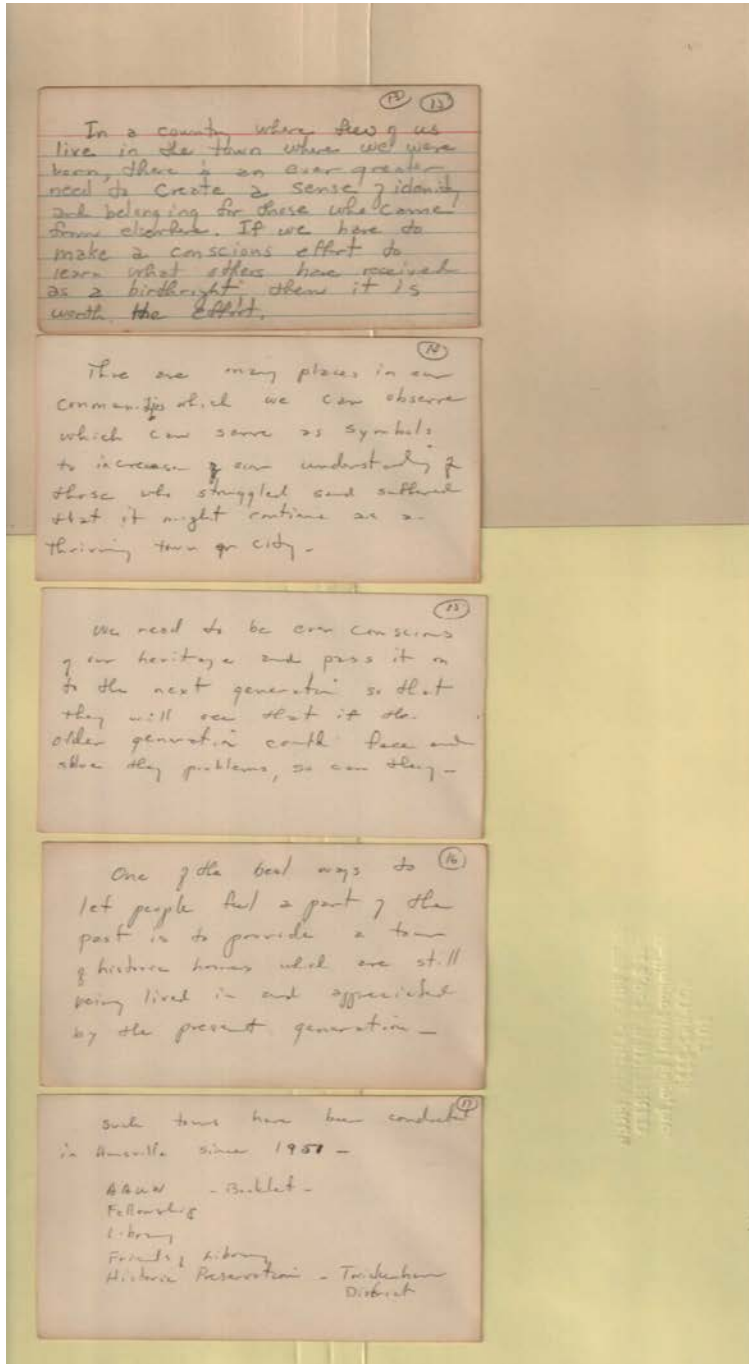 12 13
In a country where few of us
live in the town where we were
born, there is an ever greater
need to create a sense of idenity
and belonging for those who come
from elsewhere. If we have to
make a conscious effort to
learn what others have received
as a birthright then it is
worth the effort.
14
There are many places in our
communities which we can observe
which can serve as symbols
to increase our understanding of
those who struggled and suffered
that it might continue as a
thriving town or city -
15
We need to be ever conscious
of our heritage and pass it on
to the next generation so that
they will see that if the
older generation could face and
solve they problems, so can they -
16
One of the best ways to
let people feel a part of the
past is to provide a tour
of historic homes which are still
being lived in and appreciated
by the present generation -
17
Such tours have been conducted
in Huntsville since 1951 -
AAUW - Booklet -
Fellowship
Library
Friends of Library
Historic Preservation - Twickenham
District